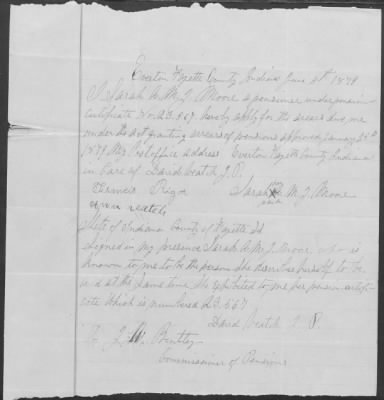 Everton Fayette County Indiana June 4th 1879
I Sarah A M J. Moore a pensioner under pension
certificate No. 23.567. hereby apply for the arrears due me
under the act granting arrears of pensions approved January 25th
1879 My Postoffice address Everton Fayette County Indiana
in Care of David Veatch J. P.
Sarah her x mark M J. Moore
Ann Veatch
State of Indiana County of Fayette Sd
signed in my presence Sarah A M J Moore, who is
known to me to be the person she describes herself to be
and at the same time she exhibited to me her pension certifi
cate which is numbered 23.567
David Veatch J. P.
To J. A. Bentley
Commissioner of Pensions